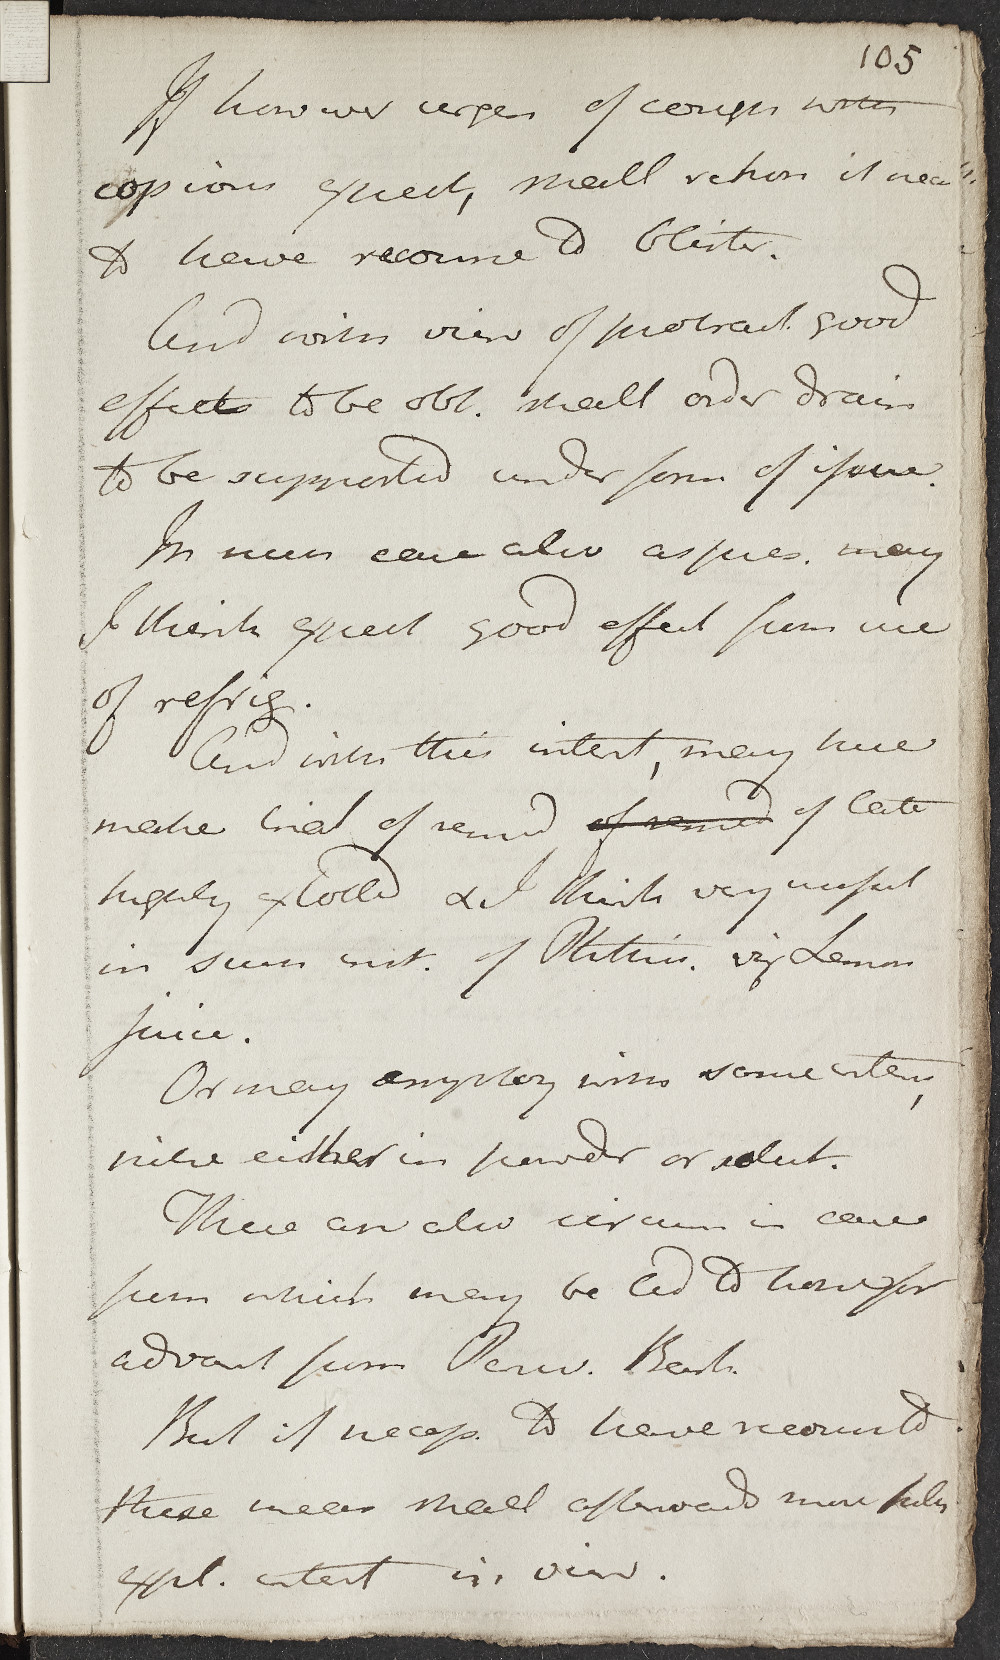 105
If however urgen of cough with
copious expect, shall think it nec
to have recourse to Blister.
And with view of protract. good
effects to be obt. shall order drain
to be supported under form of issue.
In such case also as pres. may
I think expect good effect from use
of refrig.
And with this intent, may here
make trial of remed of remed of late
highly extolled & I think very useful
in such inst. of Phthisis. viz Lemon
juice.
Or may employ with same intent,
nitre either in powder or solut.
There are also circum in case
from which may be led to hope for
advant from Peruv. Bark.
But if necess. to have recourse to
these meas shall afterwards more fully
expl. intent in view.